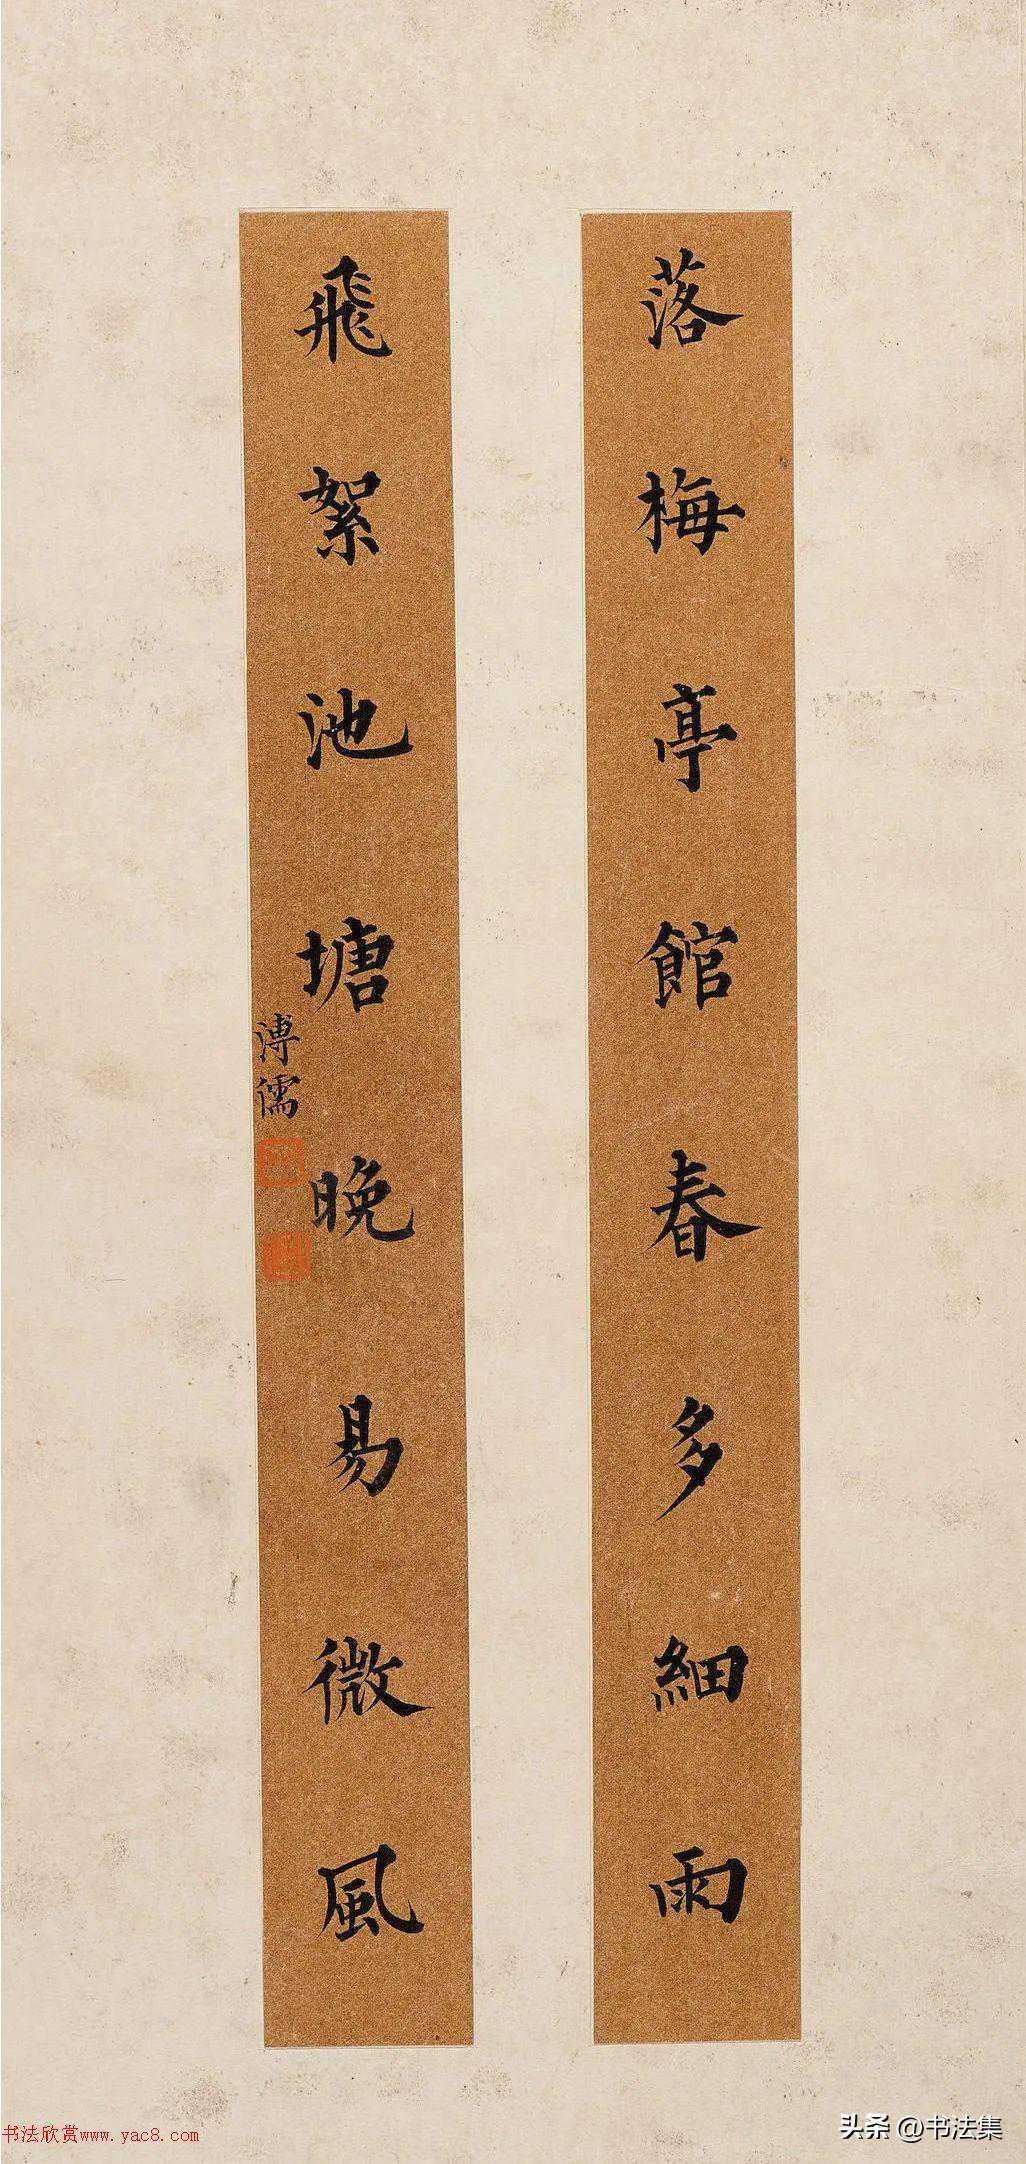 落梅亭館春多細雨
飛絮池塘晚易微風
溥儒
书法欣赏www.yac8.com
头条 @书法集